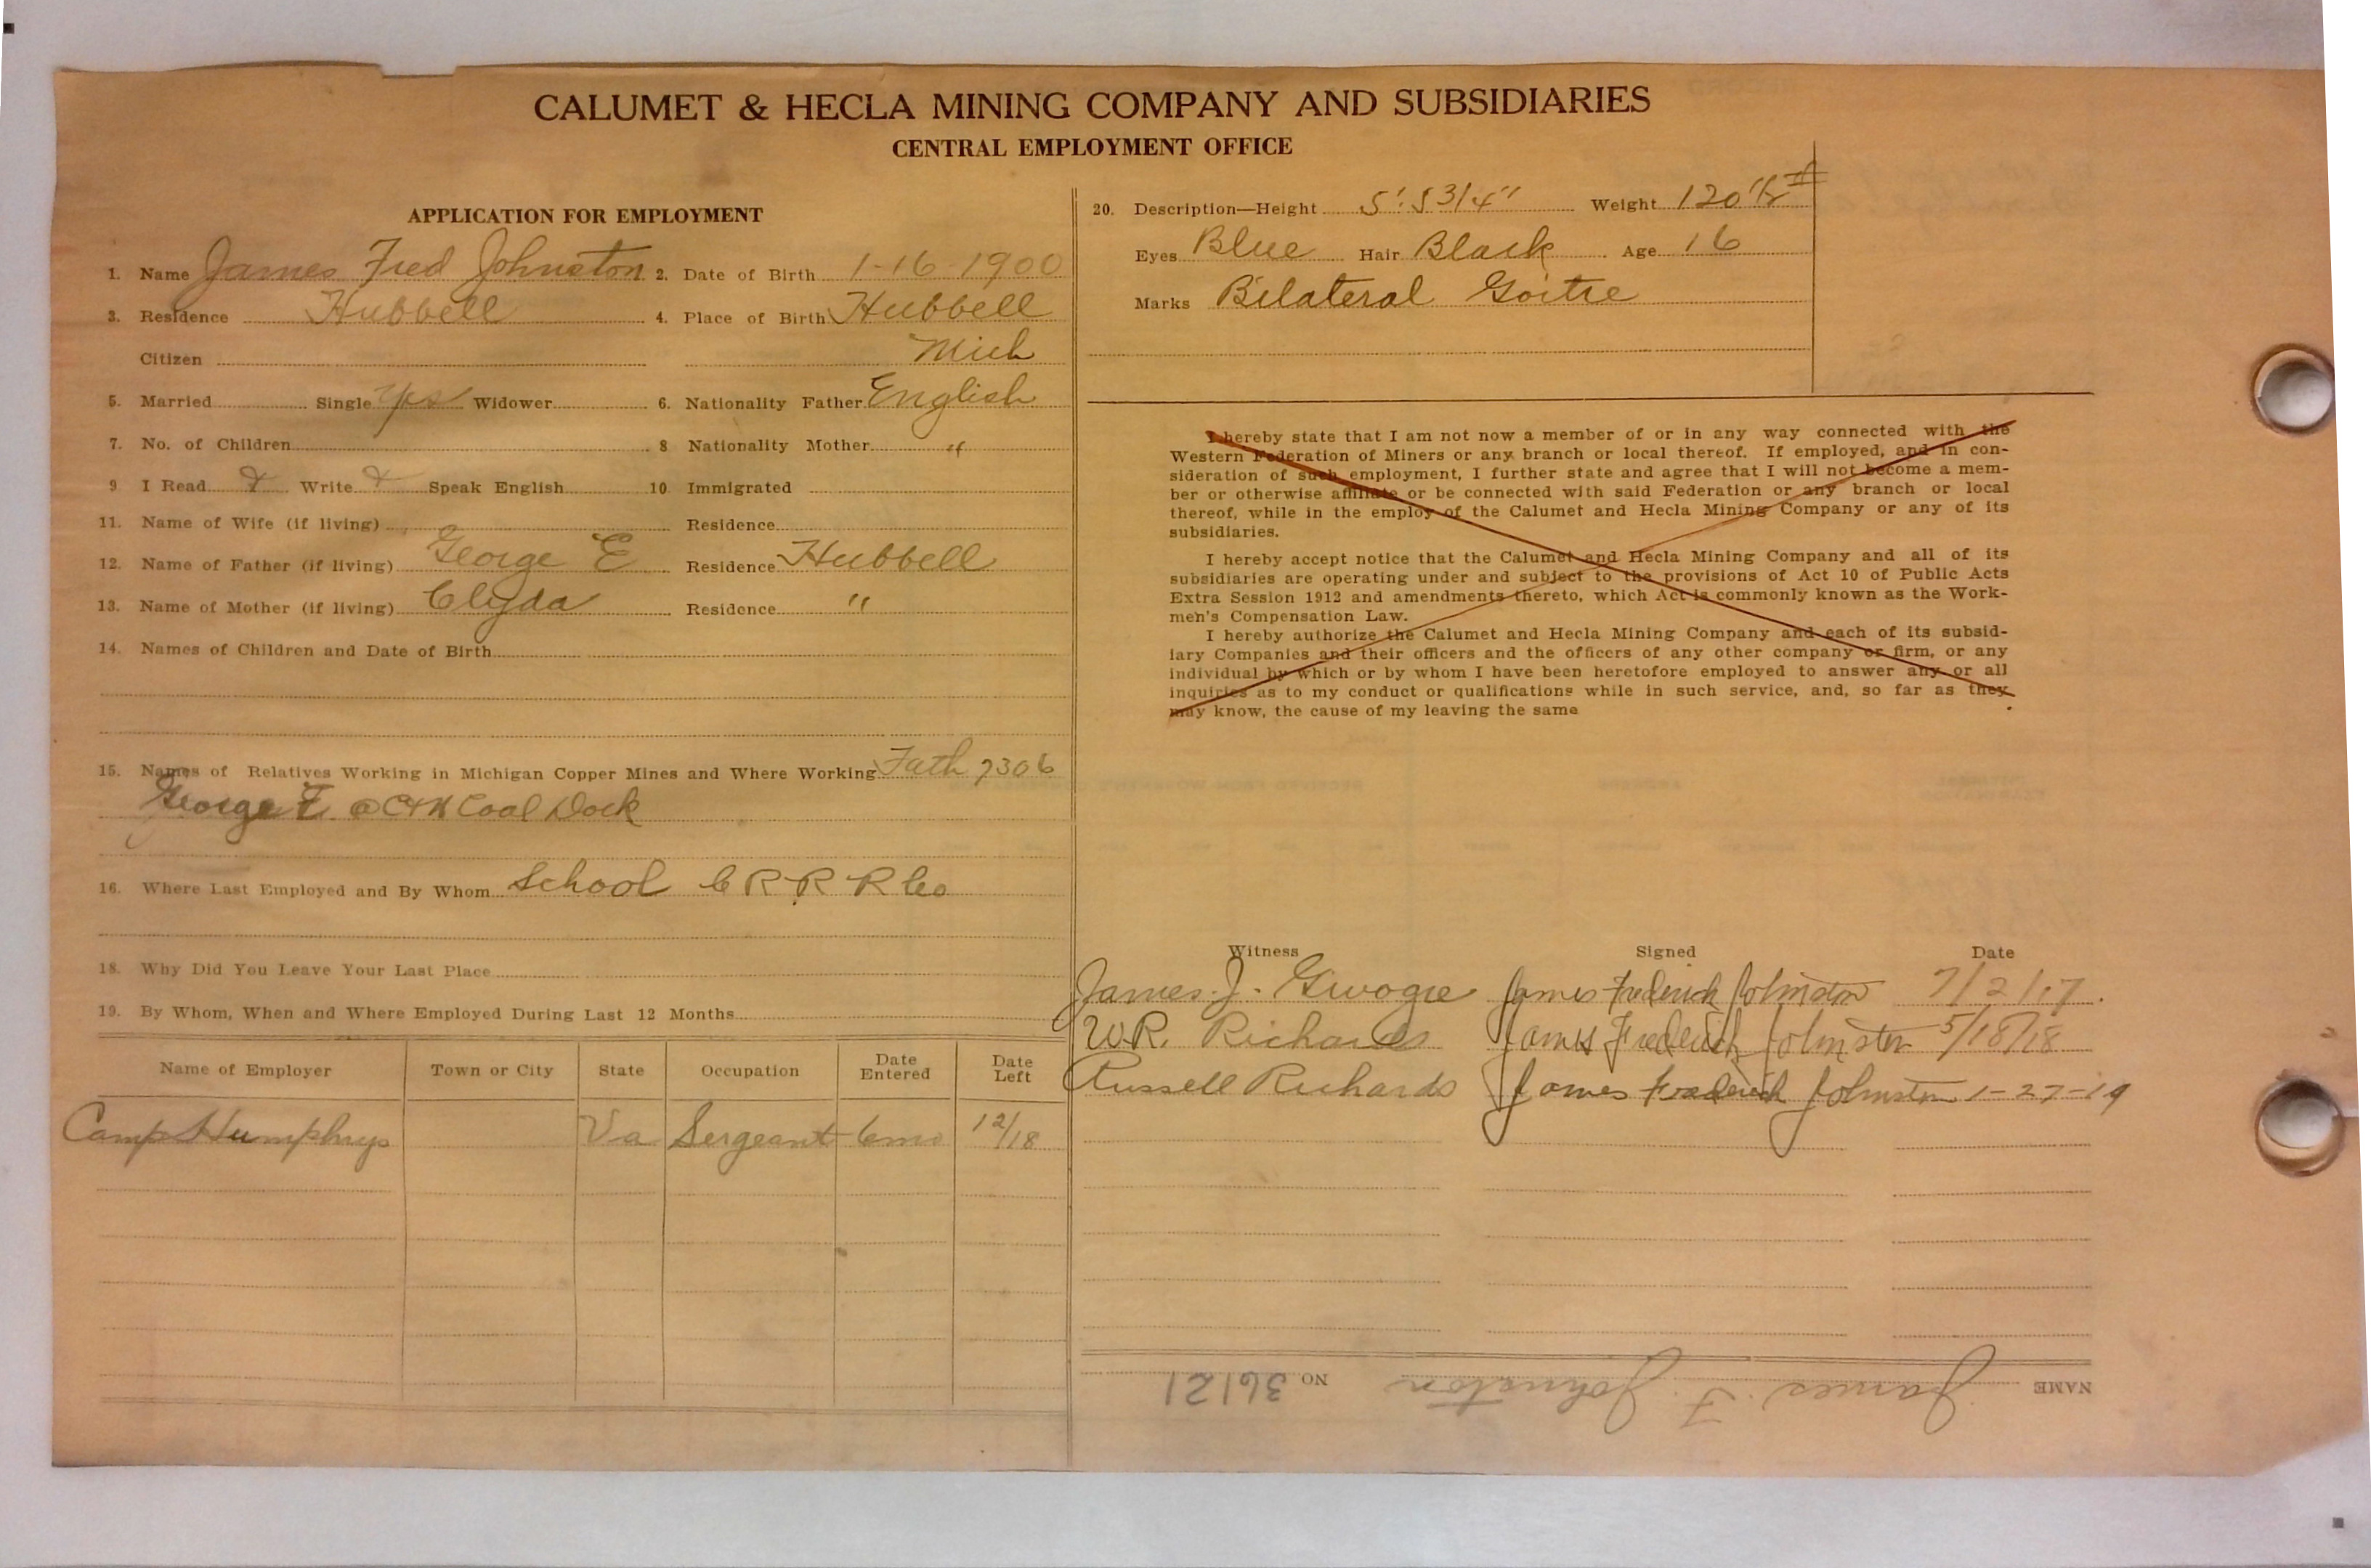 CALUMET & HECLA MINING COMPANY AND SUBSIDIARIES
CENTRAL EMPLOYMENT OFFICE
APPLICATION FOR EMPLOYMENT
1. Name James Fred Johnston 2. Date of Birth 1-16-1900
3. Residence Hubbell 4. Place of Birth Hubbell
Citizen Mich
5. Married Single Yes Widower 6. Nationality Father English
7. No. of Children 8 Nationality Mother "
9 I Read Write Speak English 10 Immigrated
11. Name of Wife (if living) Residence
12. Name of Father (if living) George E Residence Hubbell
13. Name of Mother (if living) Clyda Residence "
14. Names of Children and Date of Birth
15. Names of Relatives Working in Michigan Copper Mines and Where Working Fath 7306
George E @ C+H Coal Dock
16. Where Last Employed and By Whom School C R R R Co
18. Why Did You Leave Your Last Place
19. By Whom, When and Where Employed During Last 12 Months
Name of Employer Town or City State Occupation Date Entered Date Left
Camp Humphrys Va Sergeant 6mo 12/18
20. Description—Height 5' 5 3/4" Weight 120 1/2 #
Eyes Blue Hair Black Age 16
Marks Bilateral Goitre
I hereby state that I am not now a member of or in any way connected with the
Western Federation of Miners or any branch or local thereof. If employed, and in con-
sideration of such employment, I further state and agree that I will not become a mem-
ber or otherwise affiliate or be connected with said Federation or any branch or local
thereof, while in the employ of the Calumet and Hecla Mining Company or any of its
subsidiaries.
I hereby accept notice that the Calumet and Hecla Mining Company and all of its
subsidiaries are operating under and subject to the provisions of Act 10 of Public Acts
Extra Session 1912 and amendments thereto, which Act is commonly known as the Work-
men's Compensation Law.
I hereby authorize the Calumet and Hecla Mining Company and each of its subsid-
iary Companies and their officers and the officers of any other company or firm, or any
individual by which or by whom I have been heretofore employed to answer any or all
inquiries as to my conduct or qualifications while in such service, and, so far as they
may know, the cause of my leaving the same
Witness Signed Date
James J. James Frederick Johnston 7/2/17.
W.R. Richards James Frederick Johnston 5/18/18
Russell Richards James Frederick Johnston 1-27-19
NAME James F. Johnston NO 36121